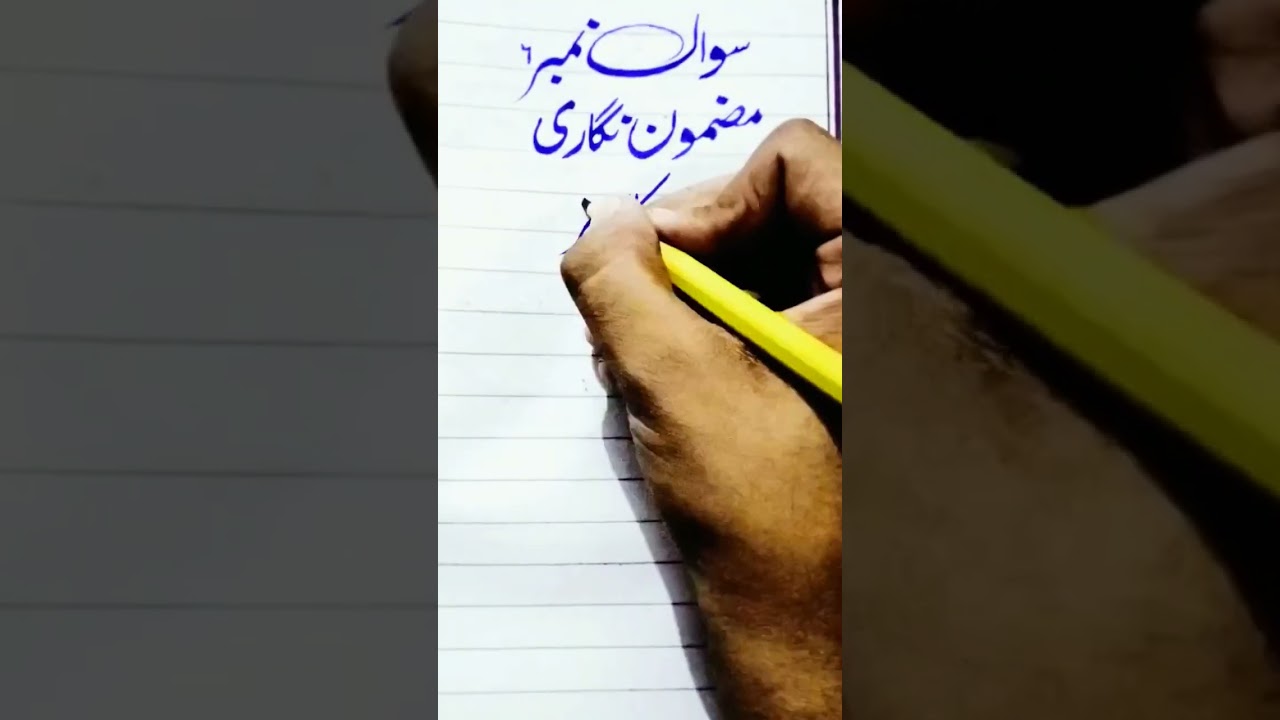 سوال نمبر ٦
مضمون نگاری